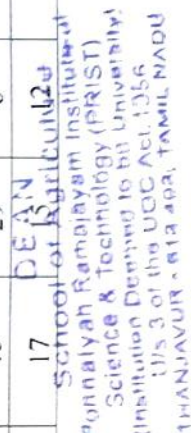 17 15 12
DEAN
School of Agriculture
Ponnaiyah Ramajayam Institute of
Science & Technology (PRIST)
Institution Deemed to be University
U/s 3 of the UGC Act. 1956
THANJAVUR - 613 403, TAMIL NADU